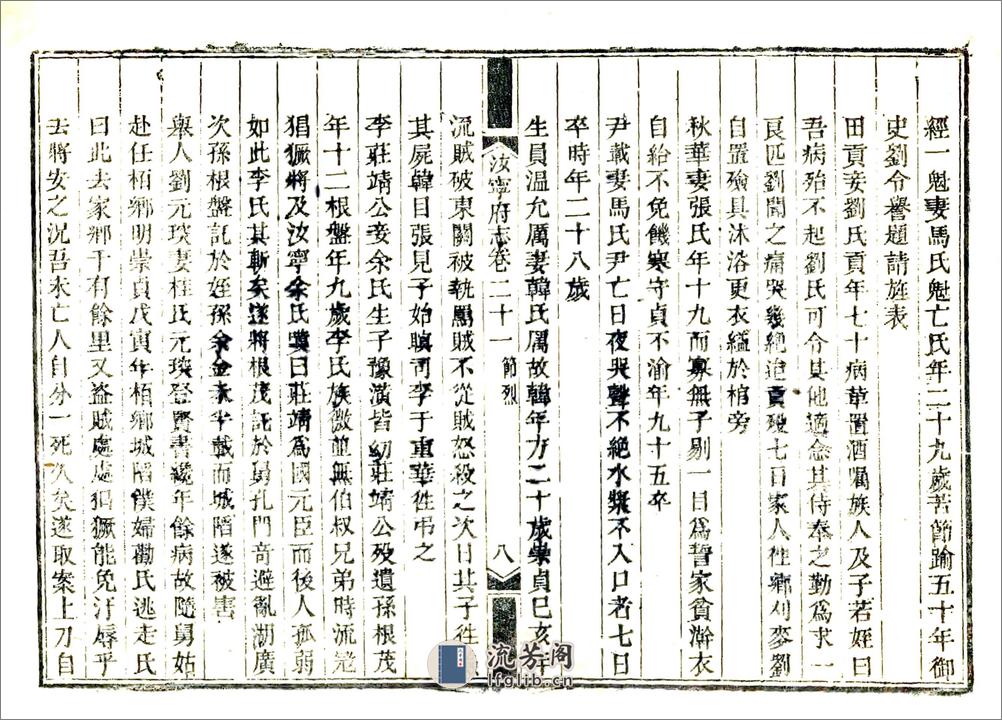 經一魁妻馬氏魁亡氏年二十九歲苦節踰五十年御
史劉令譽題請旌表
田貢妾劉氏貢年七十病革置酒囑族人及子若姪曰
吾病殆不起劉氏可令其他適念其侍奉之勤爲求一
良匹劉聞之痛哭幾絕迨貢歿七日家人徃鄉刈麥劉
自置殮具沐浴更衣縊於棺旁
秋華妻張氏年十九而寡無子剔一目爲誓家貧澣衣
自給不免饑寒守貞不渝年九十五卒
尹載妻馬氏尹亡日夜哭聲不絕水漿不入口者七日
卒時年二十八歲
生員溫允厲妻韓氏厲故韓年方二十歲崇貞己亥
汝寧府志卷二十一 節烈 八
流賊破東關被執罵賊不從賊怒殺之次日其子徃
其屍韓目張見子始瞑司李于重華徃弔之
李莊靖公妾余氏生子豫潢皆幼莊靖公歿遺孫根茂
年十二根盤年九歲李氏族微並無伯叔兄弟時流寇
猖獗將及汝寧余氏嘆曰莊靖爲國元臣而後人孤弱
如此李氏其斬矣遂將根茂託於舅孔門奇避亂湖廣
次孫根盤託於姪孫余金未半載而城陷遂被害
舉人劉元琰妻桂氏元琰登賢書纔年餘病故隨舅姑
赴任栢鄉明崇貞戊寅年栢鄉城陷僕婦勸氏逃走氏
曰此去家鄉千有餘里又盜賊處處猖獗能免汙辱乎
去將安之況吾未亡人自分一死久矣遂取案上刀自
流芳阁
lfglib.cn